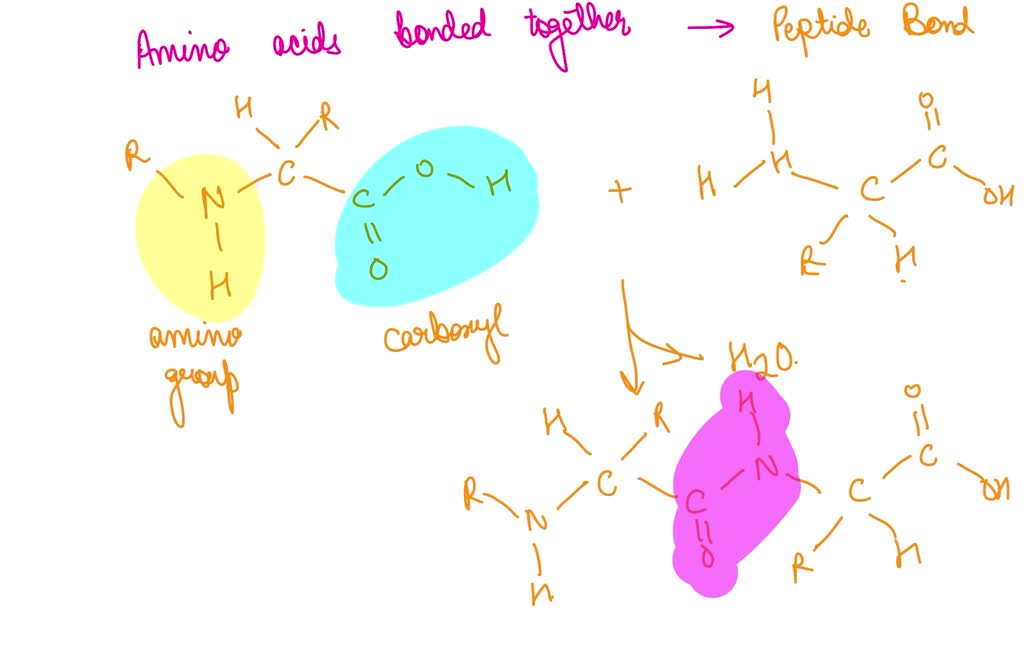 Amino acids bonded together → Peptide Bond
H R
R N C C O H
H O
amino group
carboxyl
+
H
H H C C O
R H OH
H2O.
H R H O
R N C C N C C OH
H O R H